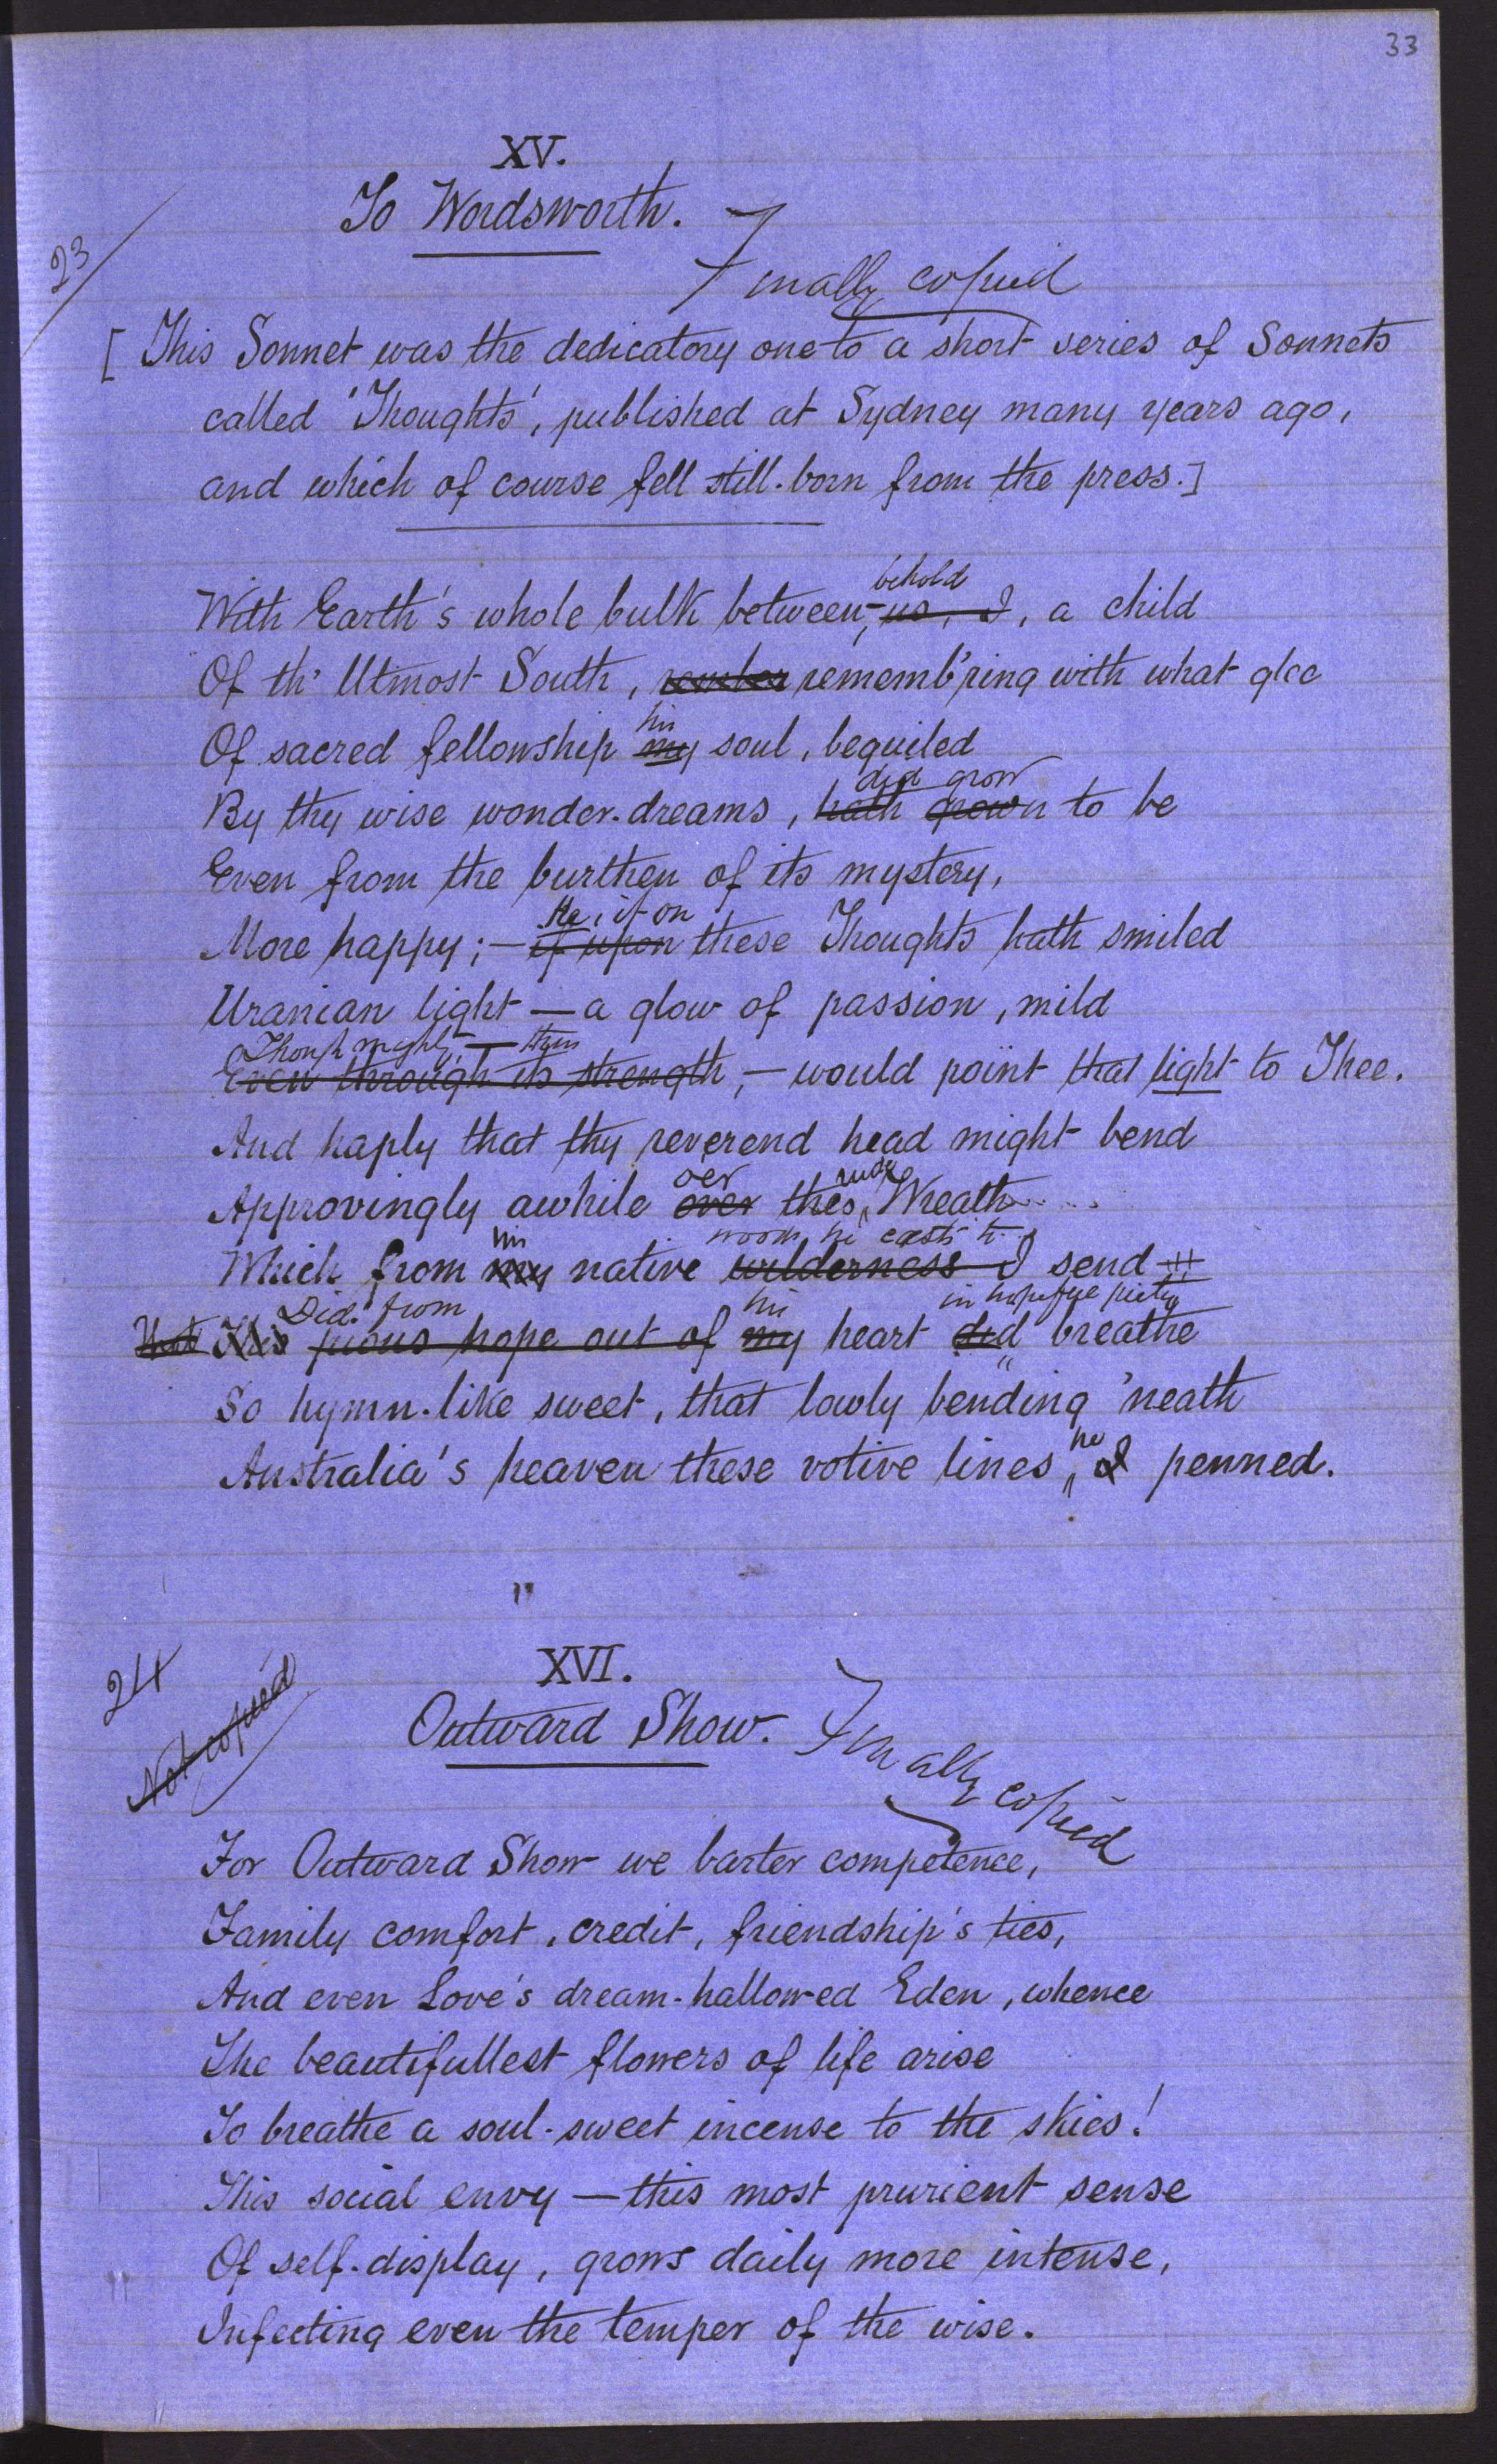 33
XV.
To Wordsworth.
23
Finally copied
[ This Sonnet was the dedicatory one to a short series of Sonnets
called 'Thoughts', published at Sydney many years ago,
and which of course fell still-born from the press.]
behold
With Earth's whole bulk between, us, I, a child
Of th' Utmost South, remember rememb'ring with what glee
his
Of sacred fellowship my soul, beguiled
did grow
By thy wise wonder-dreams, hath grown to be
Even from the burthen of its mystery,
He, if on
More happy; — if upon these Thoughts hath smiled
Uranian light — a glow of passion, mild
Though mighty, —
Even through its strength, — would point that light to Thee.
And haply that thy reverend head might bend
oer rude
Approvingly awhile over this Wreath
his room he casts to
Which from my native wilderness I send
Did from his in hopeful piety
That This pious hope out of my heart did breathe
So hymn-like sweet, that lowly bending 'neath
he
Australia's heaven these votive lines, I penned.
24
Not copied
XVI.
Outward Show.
Finally copied
For Outward Show we barter competence,
Family comfort, credit, friendship's ties,
And even Love's dream-hallowed Eden, whence
The beautifullest flowers of life arise
To breathe a soul-sweet incense to the skies!
This social envy — this most prurient sense
Of self-display, grows daily more intense,
Infecting even the temper of the wise.